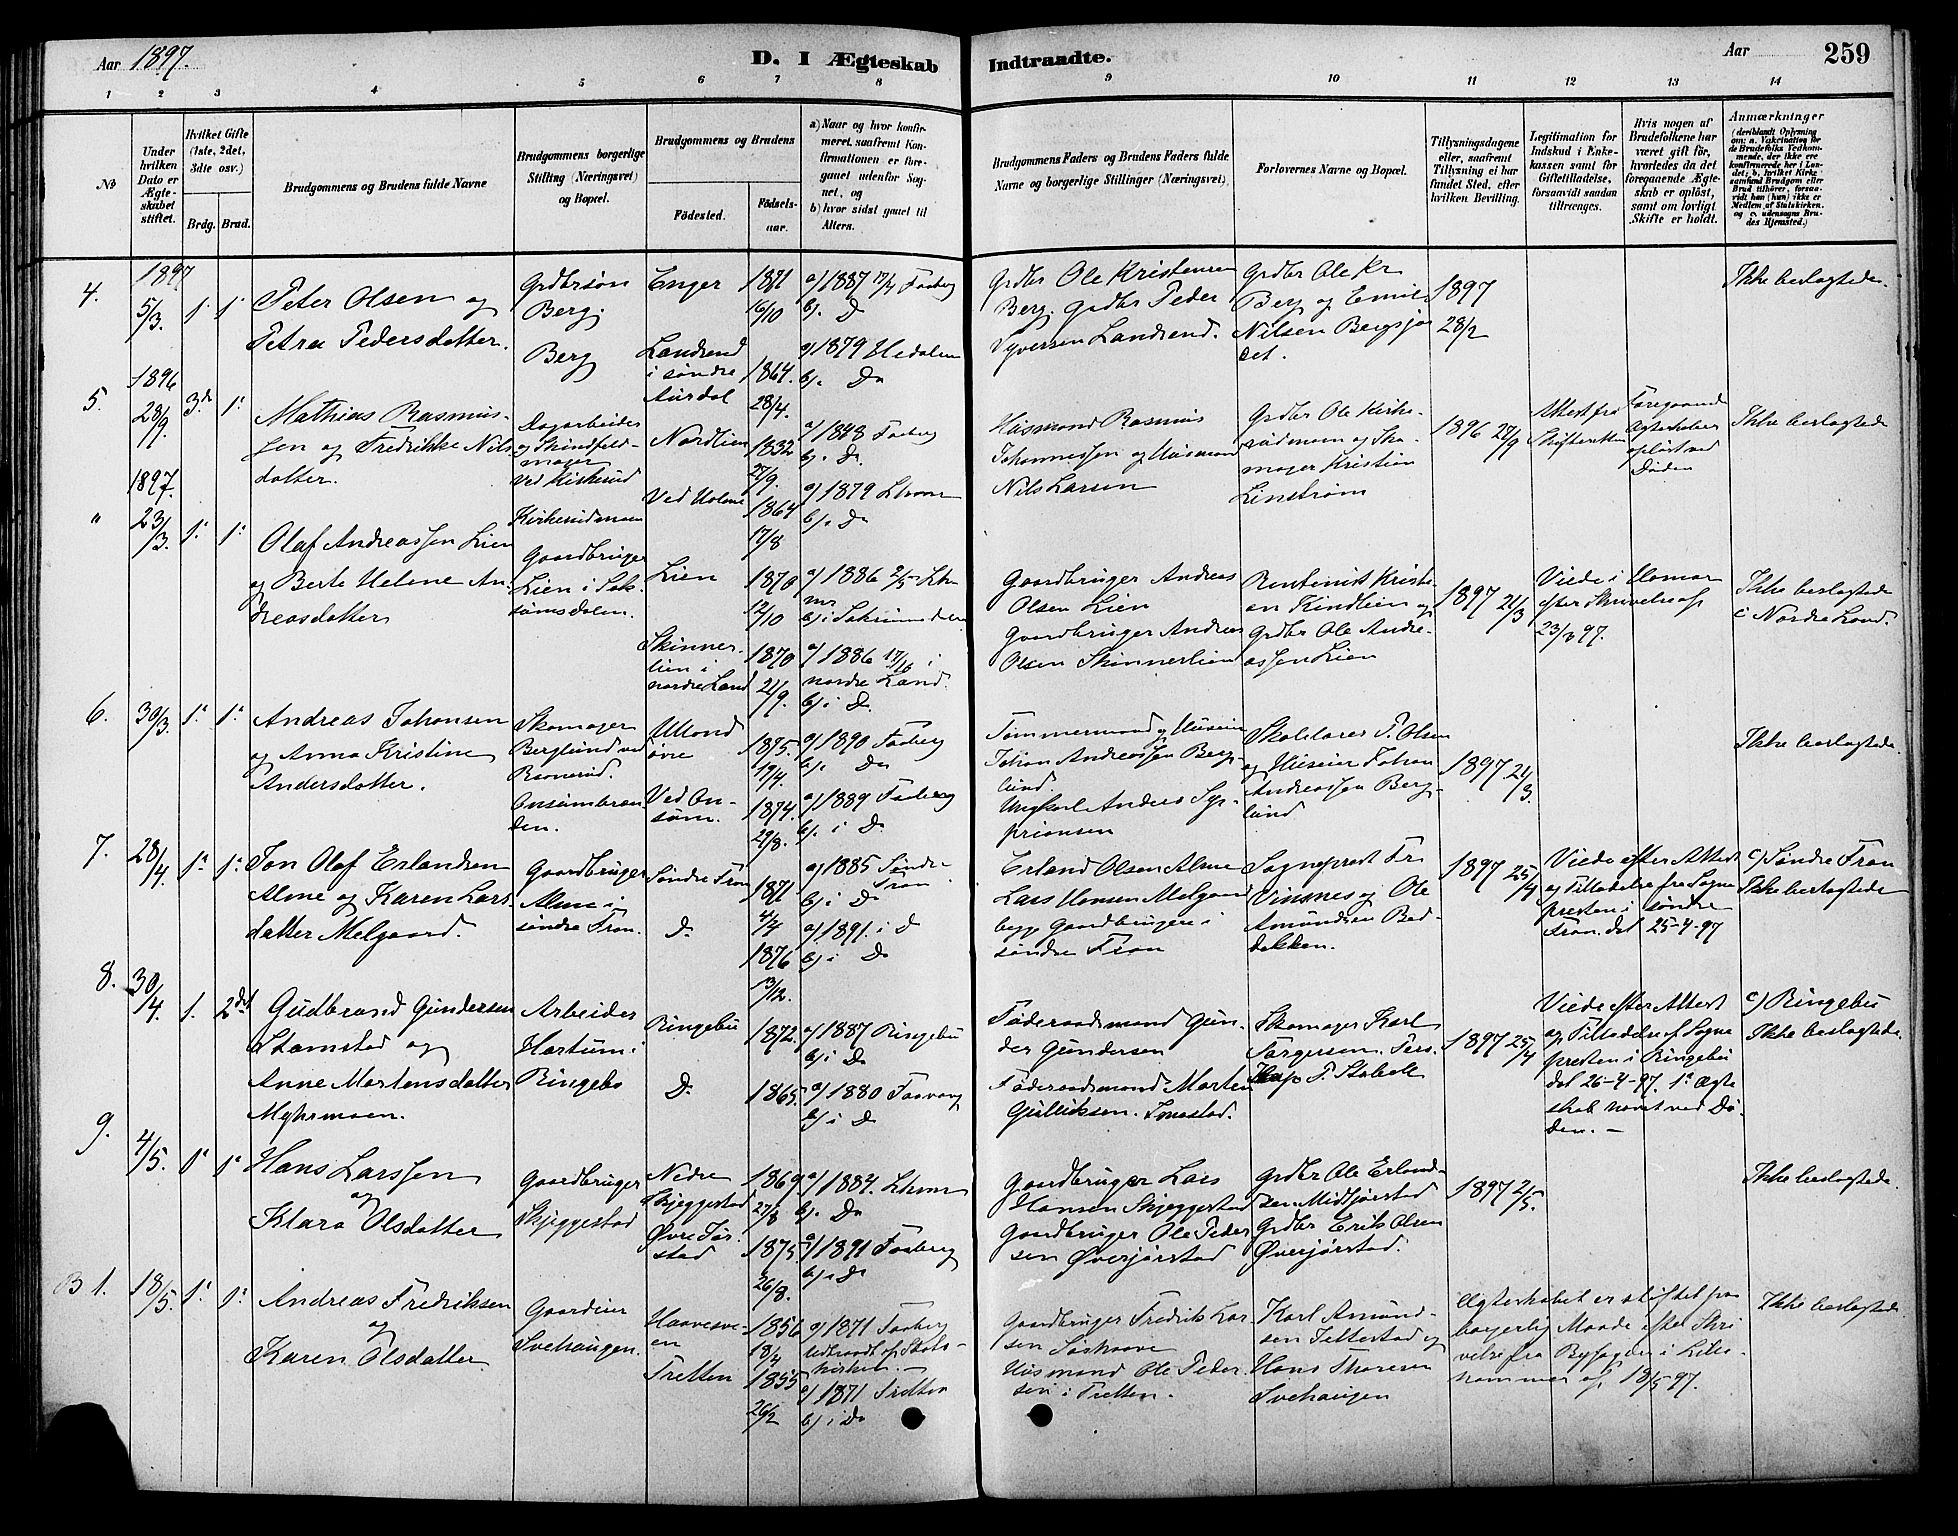 Aar 1897.
D. I Ægteskab Indtraadte.
Aar 259
1 2 3 4 5 6 7 8 9 10 11 12 13 14
No
Under hvilken Dato er Ægteskabet stiftet.
Hvilket Gifte (1ste, 2det, 3dte osv.)
Brdg. Brud.
Brudgommens og Brudens fulde Navne
Brudgommens borgerlige Stilling (Næringsvei) og Bopæl.
Brudgommens og Brudens
Fødested.
Fødselsaar.
a) Naar og hvor konfirmeret, saafremt Konfirmationen er foregaaet udenfor Sognet, og
b) hvor sidst gaaet til Alters.
Brudgommens Faders og Brudens Faders fulde Navne og borgerlige Stillinger (Næringsvei).
Forlovernes Navne og Bopæl.
Tillysningsdagene eller, saafremt Tillysning ei har fundet Sted, efter hvilken Bevilling.
Legitimation for Indskud i Enkekassen samt for Giftetilladelse, forsaavidt saadan tiltrænges.
Hvis nogen af Brudefolkene har været gift før, hvorledes da det foregaaende Ægteskab er opløst, samt om lovligt Skifte er holdt.
Anmærkninger
(deriblandt Oplysning om: a. Vakcination for de Brudefolks Vedkommende, der ikke ere konfirmerede her i Landet; b. hvilket Kirkesamfund Brudgom eller Brud tilhører, forsaavidt han (hun) ikke er Medlem af Statskirken, og c. udensogns Brudes Hjemsted.)
4.
1897
5/3.
1. 1.
Peter Olsen og
Petra Pedersdatter.
Grdbrsøn
Berg.
Berg
Enger
Landsend
i søndre
Aurdal
1871
16/10
1864.
28/4.
a) 1887 17/4 Faaberg
b). D
a) 1879 Hedalen
b). Do
Grdbr Ole Kristensen
Berg. grdbr Peder
Syversen Landsend.
Grdbr Ole Kr
Berg og Emil
Nilsen Bergsjø
1897
28/2
Ikke beslægtede.
5.
1896
28/9
3die 1.
Mathias Rasmus-
sen og Fredrikke Nils
datter.
Dagarbeider
og Skindfeld-
mager
ved Kirkerud
Kirkerudmoen
Nordlien
Ved Holene
1832
27/9.
1864
17/8
a) 1848 Faaberg
b). Do.
a) 1879 Lhmr
b). Do
Husmand Rasmus
Johannessen og Husmand
Nils Larsen
Grdbr Ole Kirke-
rudmoen og Sko-
mager Kristian
Linstrøm
1896 27/9
Attest fra
Skifteretten
Foregaaende
Ægteskaber
opløst ved
Døden
Ikke beslægtede
"
1897.
23/3.
1. 1.
Olaf Andreassen Lien
og Berte Helene An-
dreasdatter
Gaardbruger
Lien i Saks-
sumsdalen.
Lien
Skinner-
lien i
nordre Land
1870
12/10
1870
21/9.
a) 1886 2/5 Lh
mr
a) 1886 17/10 i
nordre Land.
b) i D.
Gaardbruger Andreas
Olsen Lien
Gaardbruger Andreas
Olsen Skinnerlien
Rentenist Kristi-
an Kindlien og
Grdbr Ole Andre-
assen Lien
1897 21/3
Viede i Hamar
efter Skrivelse af
23/3 97.
Ikke beslægtede
c) Nordre Land.
6.
30/3.
1. 1.
Andreas Johansen
og Anna Kristine
Andersdatter.
Skomager
Berglund ved
Onsumbraa-
den.
Ulland
øvre
Ved On-
sum.
1875.
19/4.
1874.
29/8.
a) 1890 Faaberg
b). Do
a) 1889 Faaberg
b). i D.
Tømmermand og Huseier
Johan Andreassen Berg-
lund.
Ungkarl Anders Sy-
prionsen
Skolelærer P. Olsen
og Huseier Johan
Andreassen Berg-
lund
1897. 21/3.
Ikke beslægtede
7.
28/4.
1. 1.
Jon Olaf Erlandsen
Alme og Karen Lars-
datter Melgaard.
Gaardbruger
Alme i
søndre Fron.
Søndre Fron
D.
1871
4/4
1876
13/12.
a) 1885 Søndre
Fron
b) i D
a) 1891. i D
b) i D
Erland Olsen Alme
Lars Hansen Melgaard
begge Gaardbrugere i
søndre Fron
Sogneprest Fr
Vinsnes og Ole
Amundsen Bad-
stubakken.
1897 25/4
Viede efter Attest
og Tilladelse fra Sogne
presten i søndre
Fron. dat 25-4-97
c) Søndre Fron
Ikke beslægtede
8.
30/4.
1. 2det
Gudbrand Gundersen
Stamstad og
Anne Mortensdatter
Myhrmoen.
Arbeider
Hartum i
Ringebo
Ringebu
D.
1872.
1865.
a) 1887 Ringebu
b) i D
a) 1880 Faavang
b) i D
Føderaadsmand Gun-
der Gundersen
Føderaadsmand Morten
Gulliksen.
Skomager Karl
Torgersen.
P. Stabell
1897 25/4
Viede efter Attest
og Tilladelse af Sogne
presten i Ringebu
dat 26-4-97. 1ste Ægte
skab hævet ved Dø-
den. -
c) Ringebu
Ikke beslægtede.
9.
4/5.
1. 1.
Hans Larssen
og
Klara Olsdatter
Gaardbruger
Skjeggestad
Nedre
Skjeggestad
Øvre Jør-
stad
1869
27/8
1875.
26/8.
a) 1884. Lhmr
b). Do
a) 1891 Faaberg
b). Do
Gaardbruger Lars
Hansen Skjeggestad
Gaardbruger Ole Peder
sen Øverjørstad
Grdbr Ole Erland-
sen Midtjørstad
Grdbr Erik Olsen
Øverjørstad.
1897 2/5.
Ikke beslægtede.
B 1.
18/5.
1. 1.
Andreas Fredriksen
og
Karen Olsdatter
Gaardeier
Svehaugen.
Haavesve-
en
Tretten
1856
18/4
1855
26/2
a) 1871 Faaberg
Udtraadt af Stats-
kirken. -
a) 1871 Tretten
b) i Do
Gaardbruger Fredrik Lar
sen
Husmand Ole Peder-
sen i Tretten.
Karl Amund-
sen Jettestad og
Hans Thoresen
Svehaugen
Ægteskabet er stiftet paa
borgerlig Maade efter Skri
velse fra Byfogden i Lille-
hammer af 18/5 97.
Ikke beslægtede